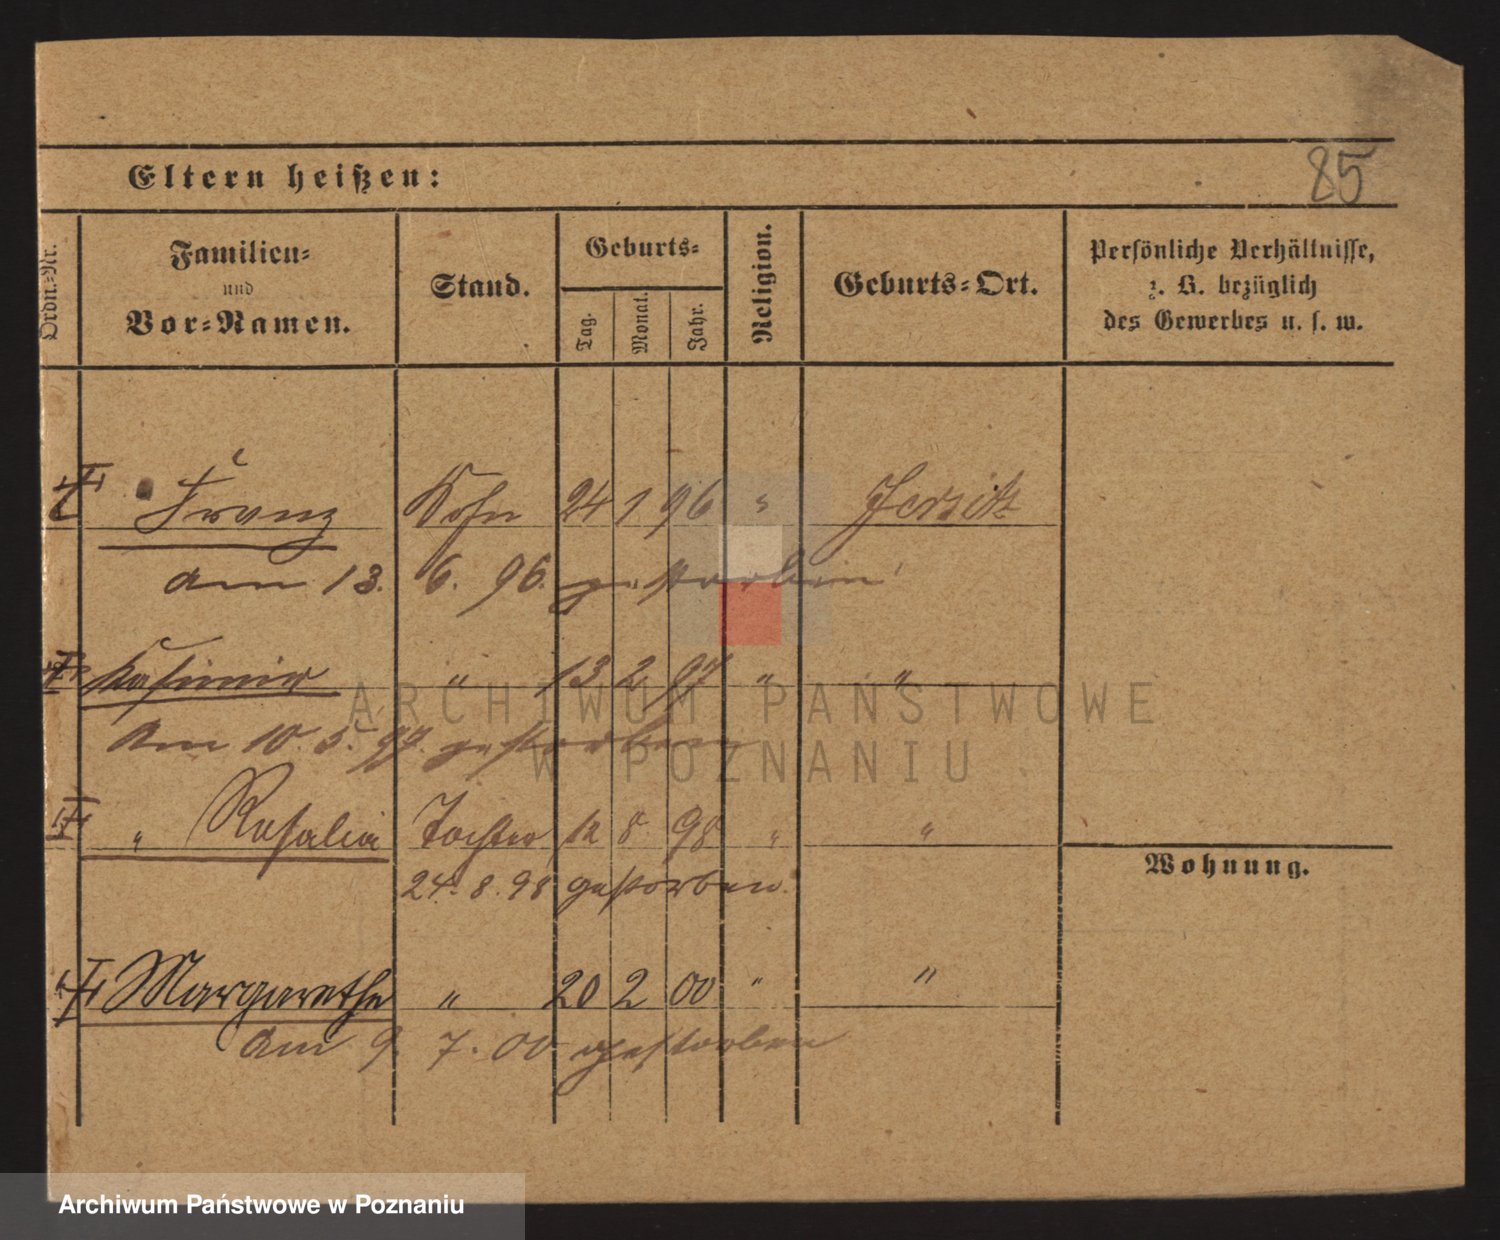 85
Eltern heißen:
Ordn.-Nr.
Familien-
und
Vor-Namen.
Stand.
Geburts-
Tag.
Monat.
Jahr.
Religion.
Geburts-Ort.
Persönliche Verhältnisse,
z. B. bezüglich
des Gewerbes u. s. w.
Franz Sohn 24 1 96 " Jersitz
am 13. 6. 96. gestorben
Kasimir " 13 2 97 " "
Am 10. 5. 97. gestorben
" Rosalia Tochter 12 8 98 " "
24. 8. 98 gestorben.
Wohnung.
Margarethe " 20 2 00 " "
Am 9. 7. 00 gestorben
ARCHIWUM PAŃSTWOWE
W POZNANIU
Archiwum Państwowe w Poznaniu